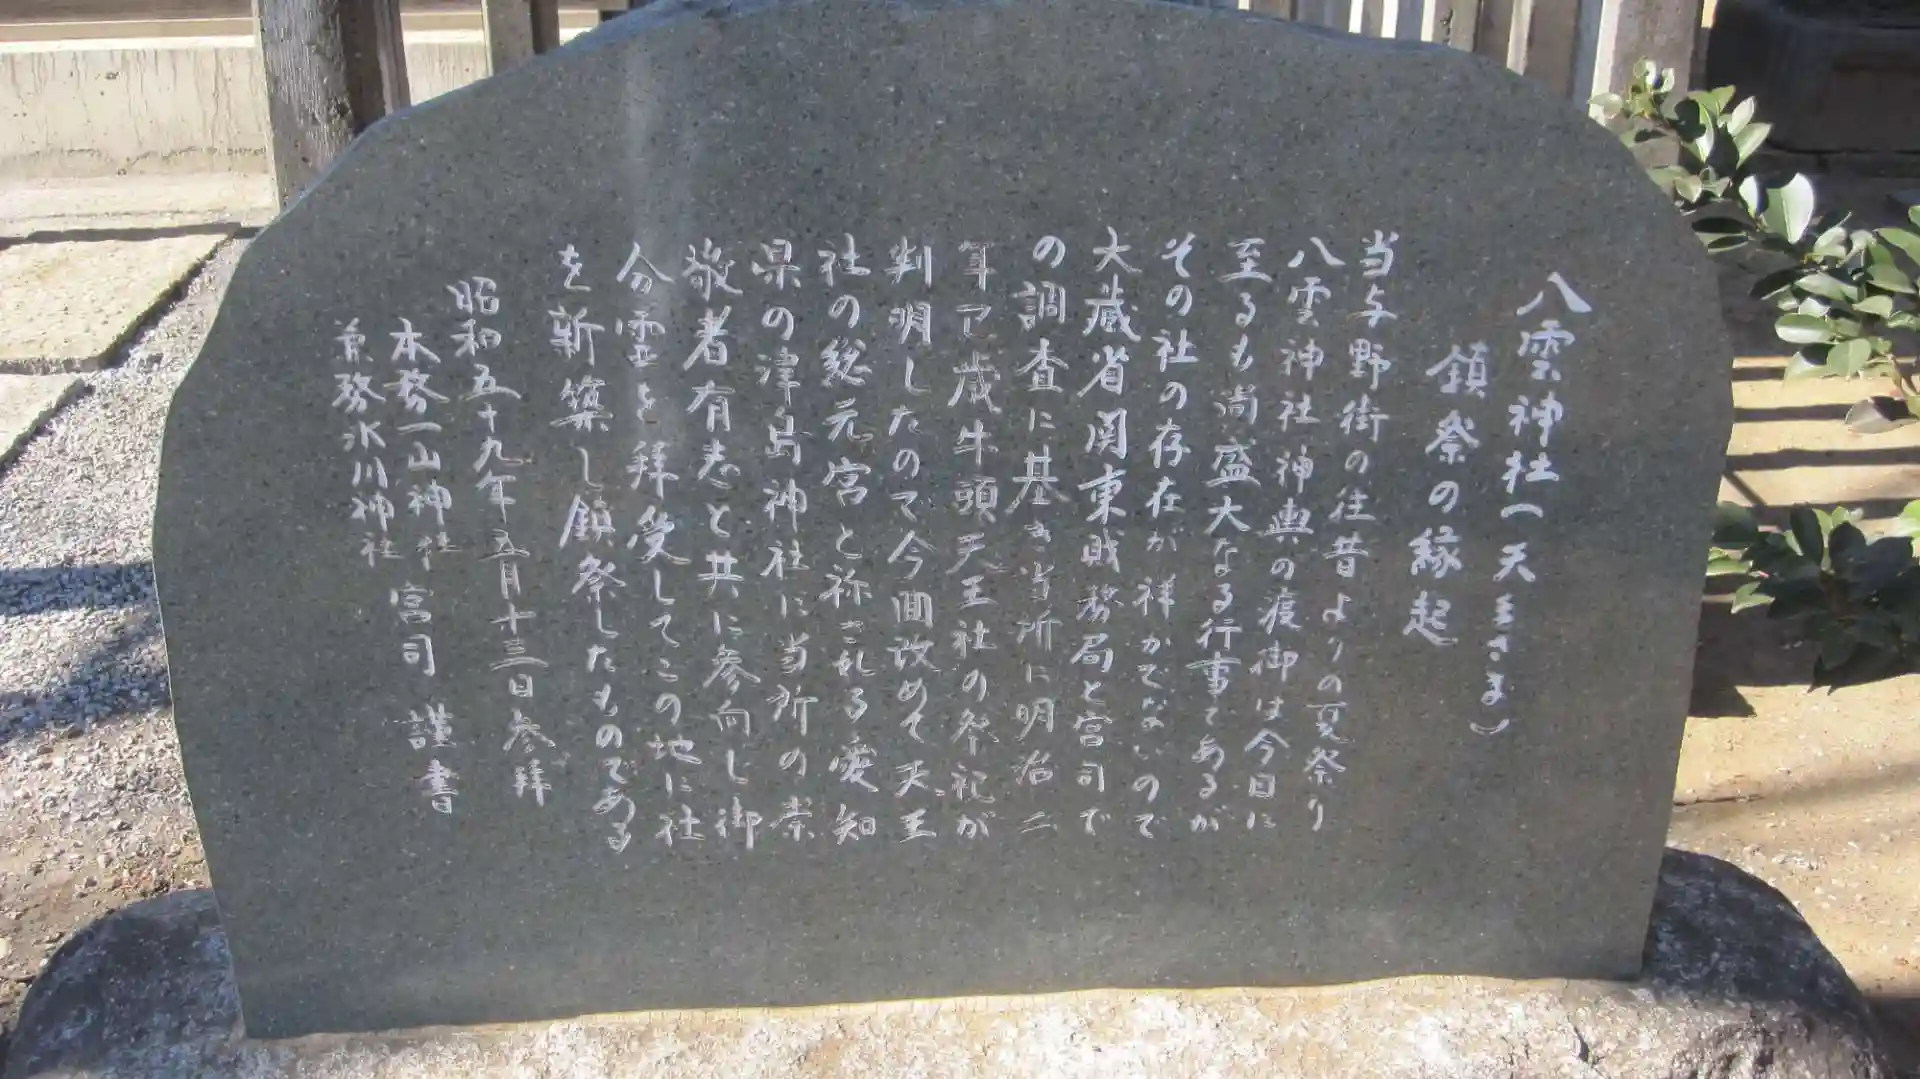 八雲神社(天王さま)
鎮祭の縁起
当与野街の往昔よりの夏祭り
八雲神社神輿の渡御は今日に
至るも尚盛大なる行事であるが
その社の存在が祥かでないので
大蔵省関東財務局と宮司で
の調査に基き当所に明治二
年 歳牛頭天王社の祭祀が
判明したので今回改めて天王
社の総元宮と称される愛知
県の津島神社に当所の崇
敬者有志と共に参向し御
分霊を拝受してこの地に社
を新築し鎮祭したものである
昭和五十九年五月十三日参拝
本務一山神社 宮司 謹書
兼務氷川神社